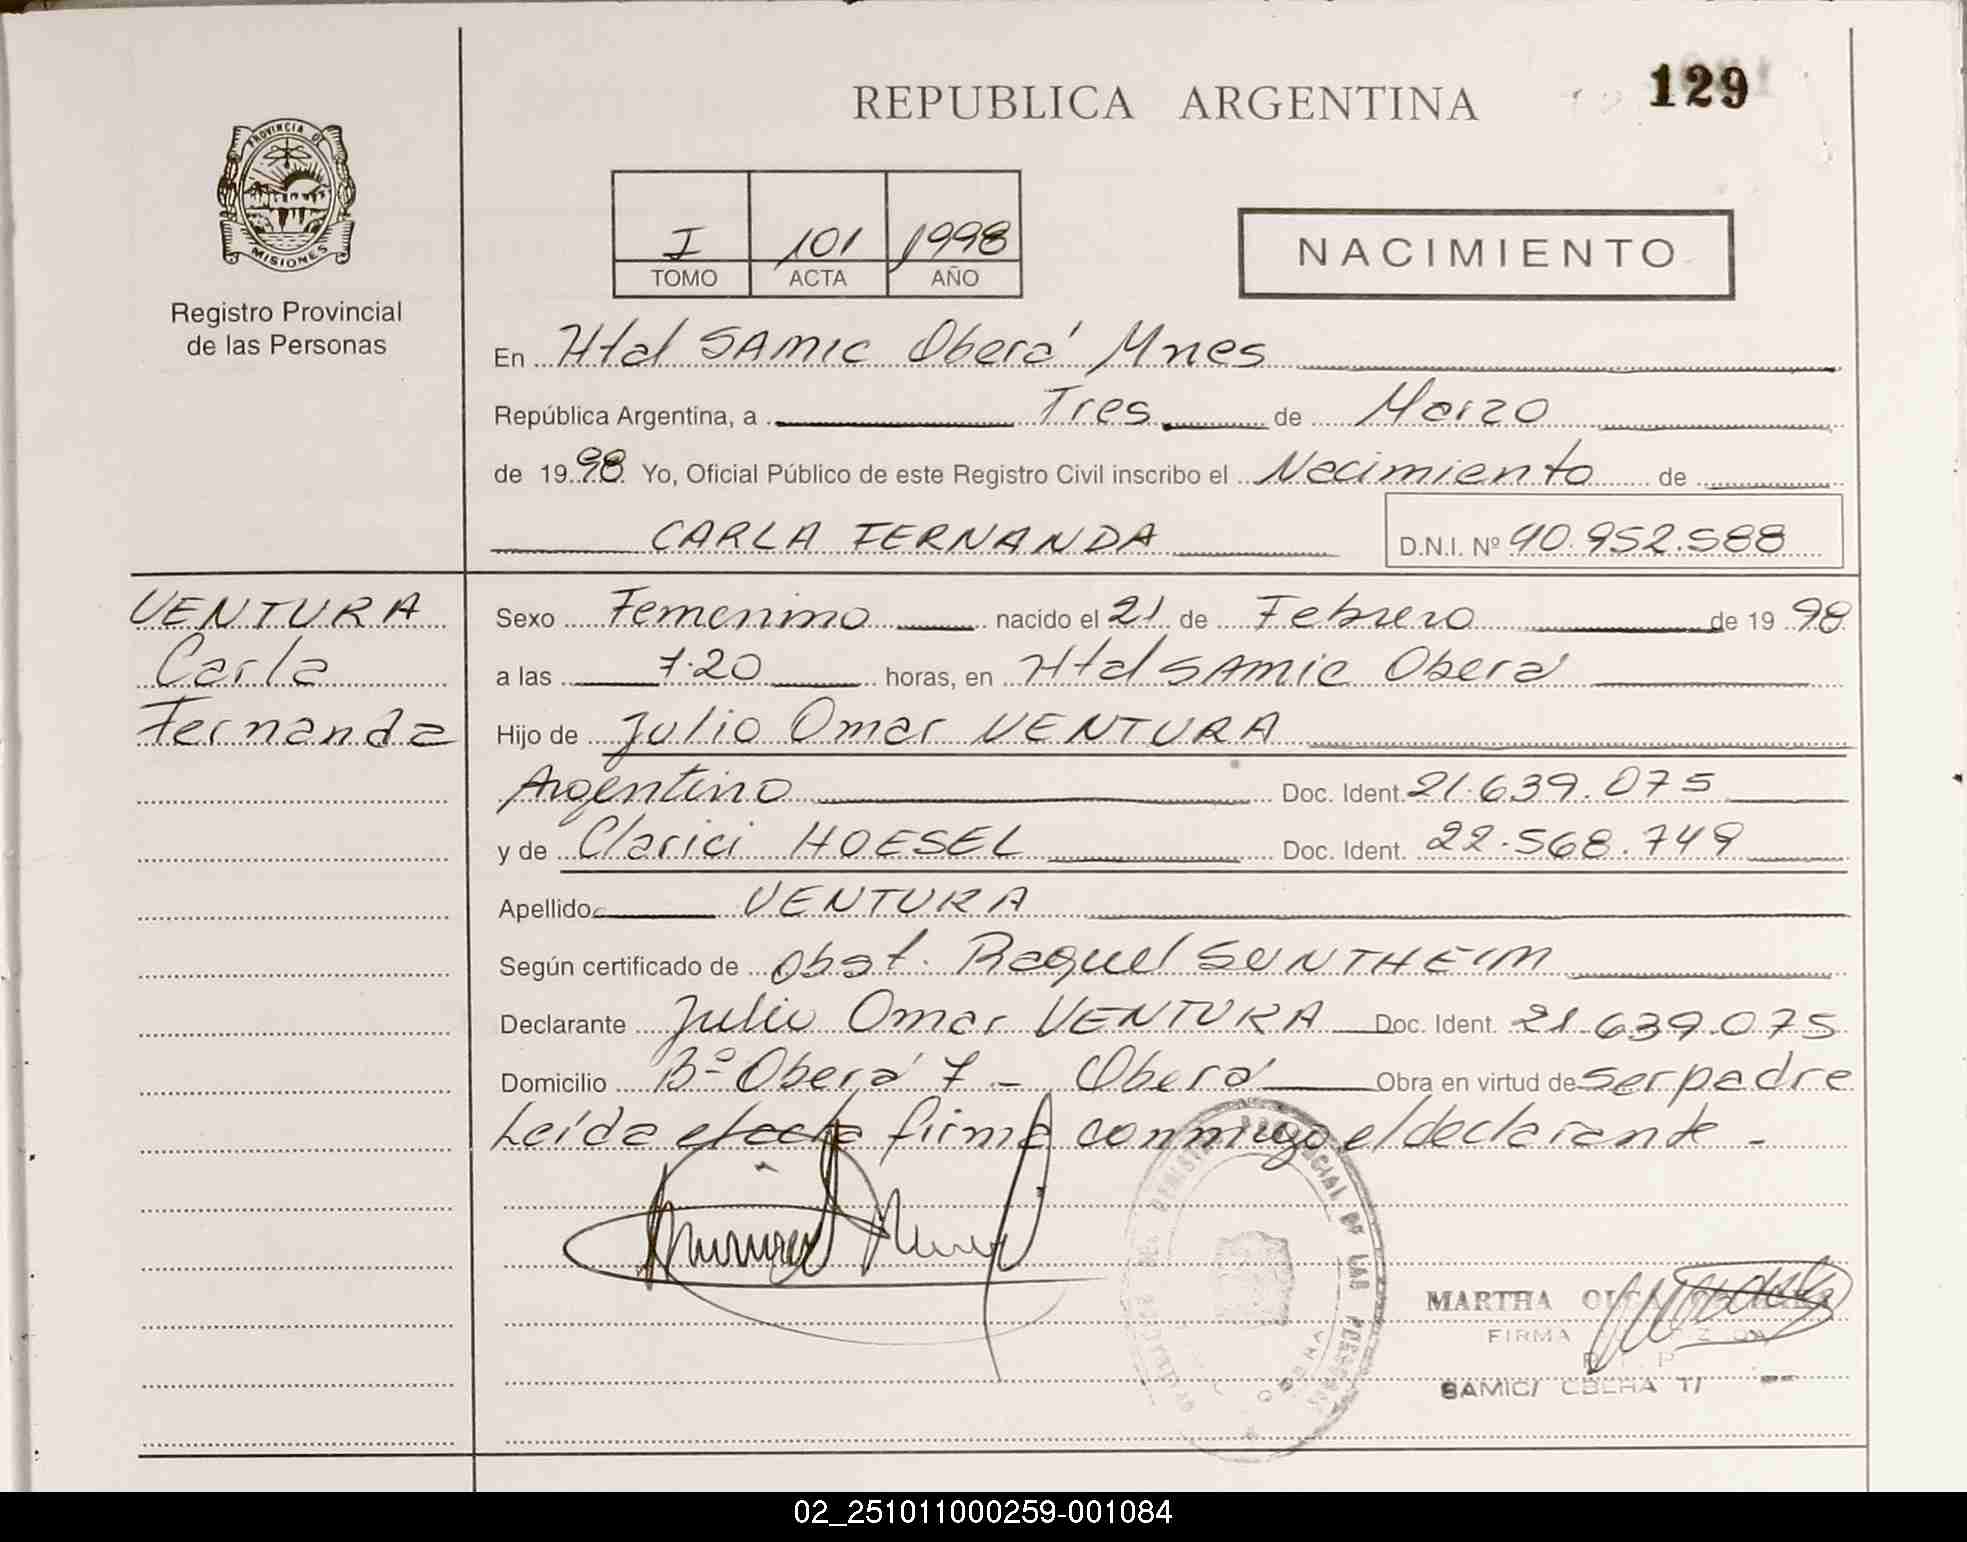 REPUBLICA ARGENTINA
129
PROVINCIA DE
MISIONES
Registro Provincial
de las Personas
I 101 1998
TOMO ACTA AÑO
NACIMIENTO
En Htal SAMIC Oberá Mnes
República Argentina, a Tres de Marzo
de 1998 Yo, Oficial Público de este Registro Civil inscribo el Nacimiento de
CARLA FERNANDA D.N.I. Nº 40.952.588
VENTURA
Carla
Fernanda
Sexo Femenino nacido el 21 de Febrero de 1998
a las 7.20 horas, en Htal SAMIC Oberá
Hijo de Julio Omar VENTURA
Argentino Doc. Ident. 21.639.075
y de Clarici HOESEL Doc. Ident. 22.568.749
Apellido VENTURA
Según certificado de obst. Raquel SUNTHEIM
Declarante Julio Omar VENTURA Doc. Ident. 21.639.075
Domicilio Bº Oberá 7 - Oberá Obra en virtud de ser padre
Leída el acta firma conmigo el declarante -
PROVINCIAL DE LAS PERSONAS
MARTHA
FIRMA
SAMIC/
02_251011000259-001084